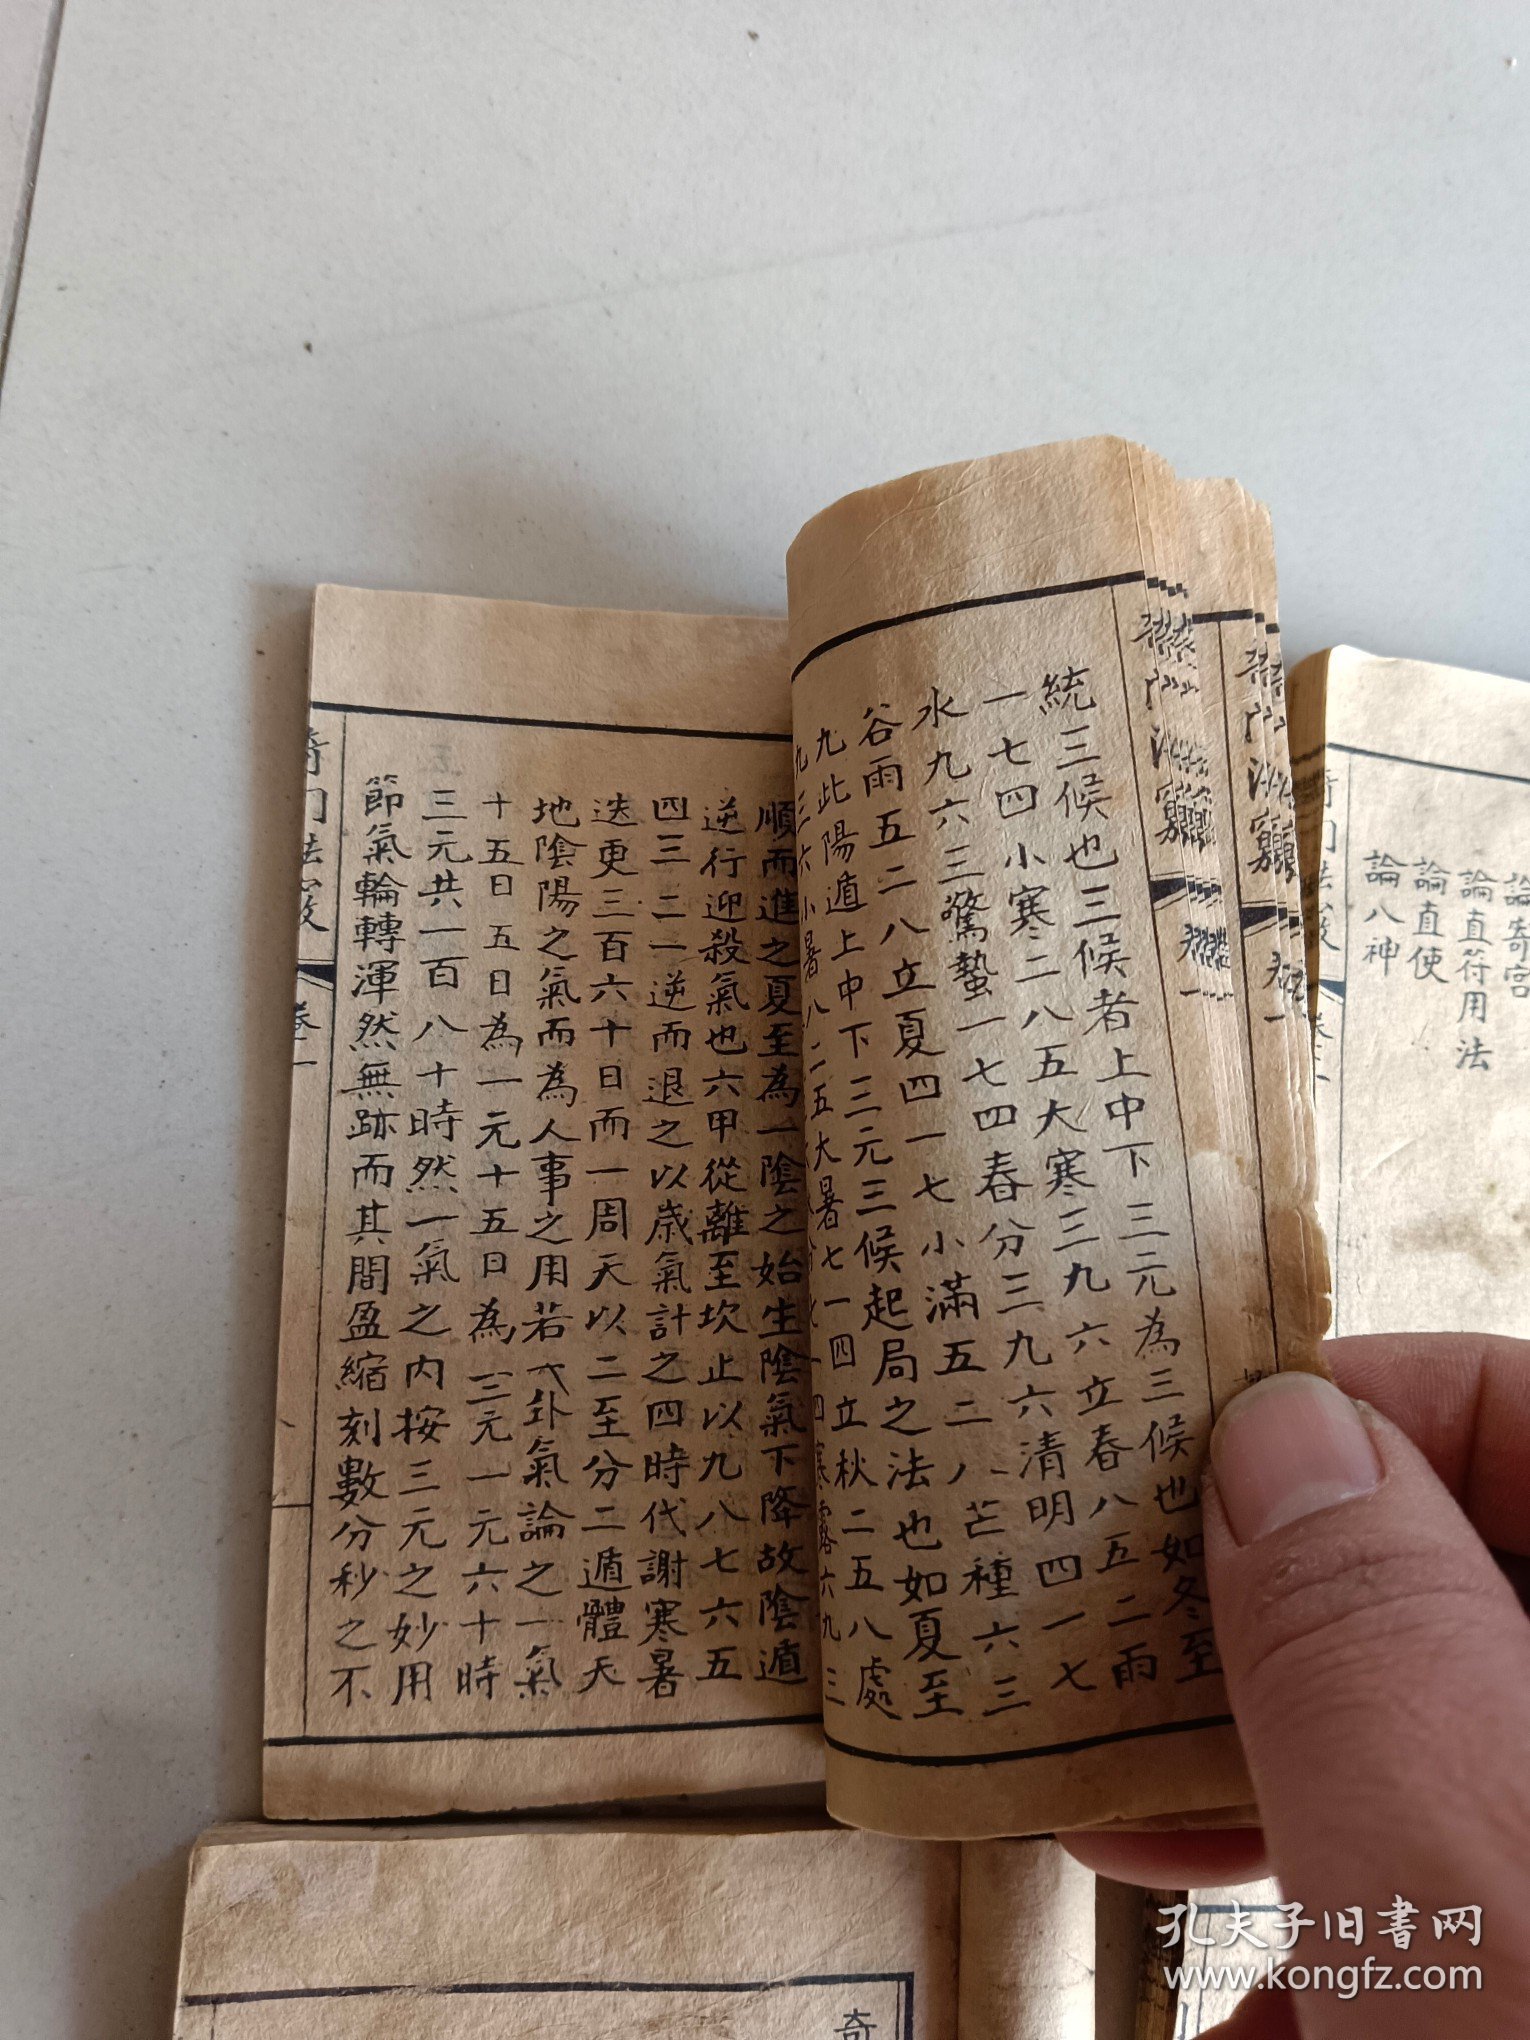 統三候也三候者上中下三元為三候也如冬至
一七四小寒二八五大寒三九六立春八五二雨
水九六三驚蟄一七四春分三九六清明四一七
谷雨五二八立夏四一七小滿五二八芒種六三
九此陽遁上中下三元三候起局之法也如夏至
九三六小暑八二五大暑七一四立秋二五八處
四寒露六九三
順而進之夏至為一陰之始生陰氣下降故陰遁
逆行迎殺氣也六甲從離至坎止以九八七六五
四三二一逆而退之以歲氣計之四時代謝寒暑
迭更三百六十日而一周天以二至分二遁體天
地陰陽之氣而為人事之用若八卦氣論之一氣
十五日五日為一元十五日為三元一元六十時
三元共一百八十時然一氣之內按三元之妙用
節氣輪轉渾然無跡而其間盈縮刻數分秒之不
奇門法竅 卷一
論寄宮
論直符用法
論直使
論八神
奇
孔夫子旧書网
www.kongfz.com